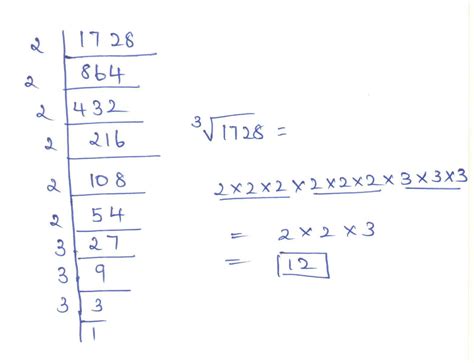 2 | 1728
2 | 864
2 | 432
2 | 216
2 | 108
2 | 54
3 | 27
3 | 9
3 | 3
| 1
³√1728 =
2×2×2 × 2×2×2 × 3×3×3
= 2 × 2 × 3
= 12